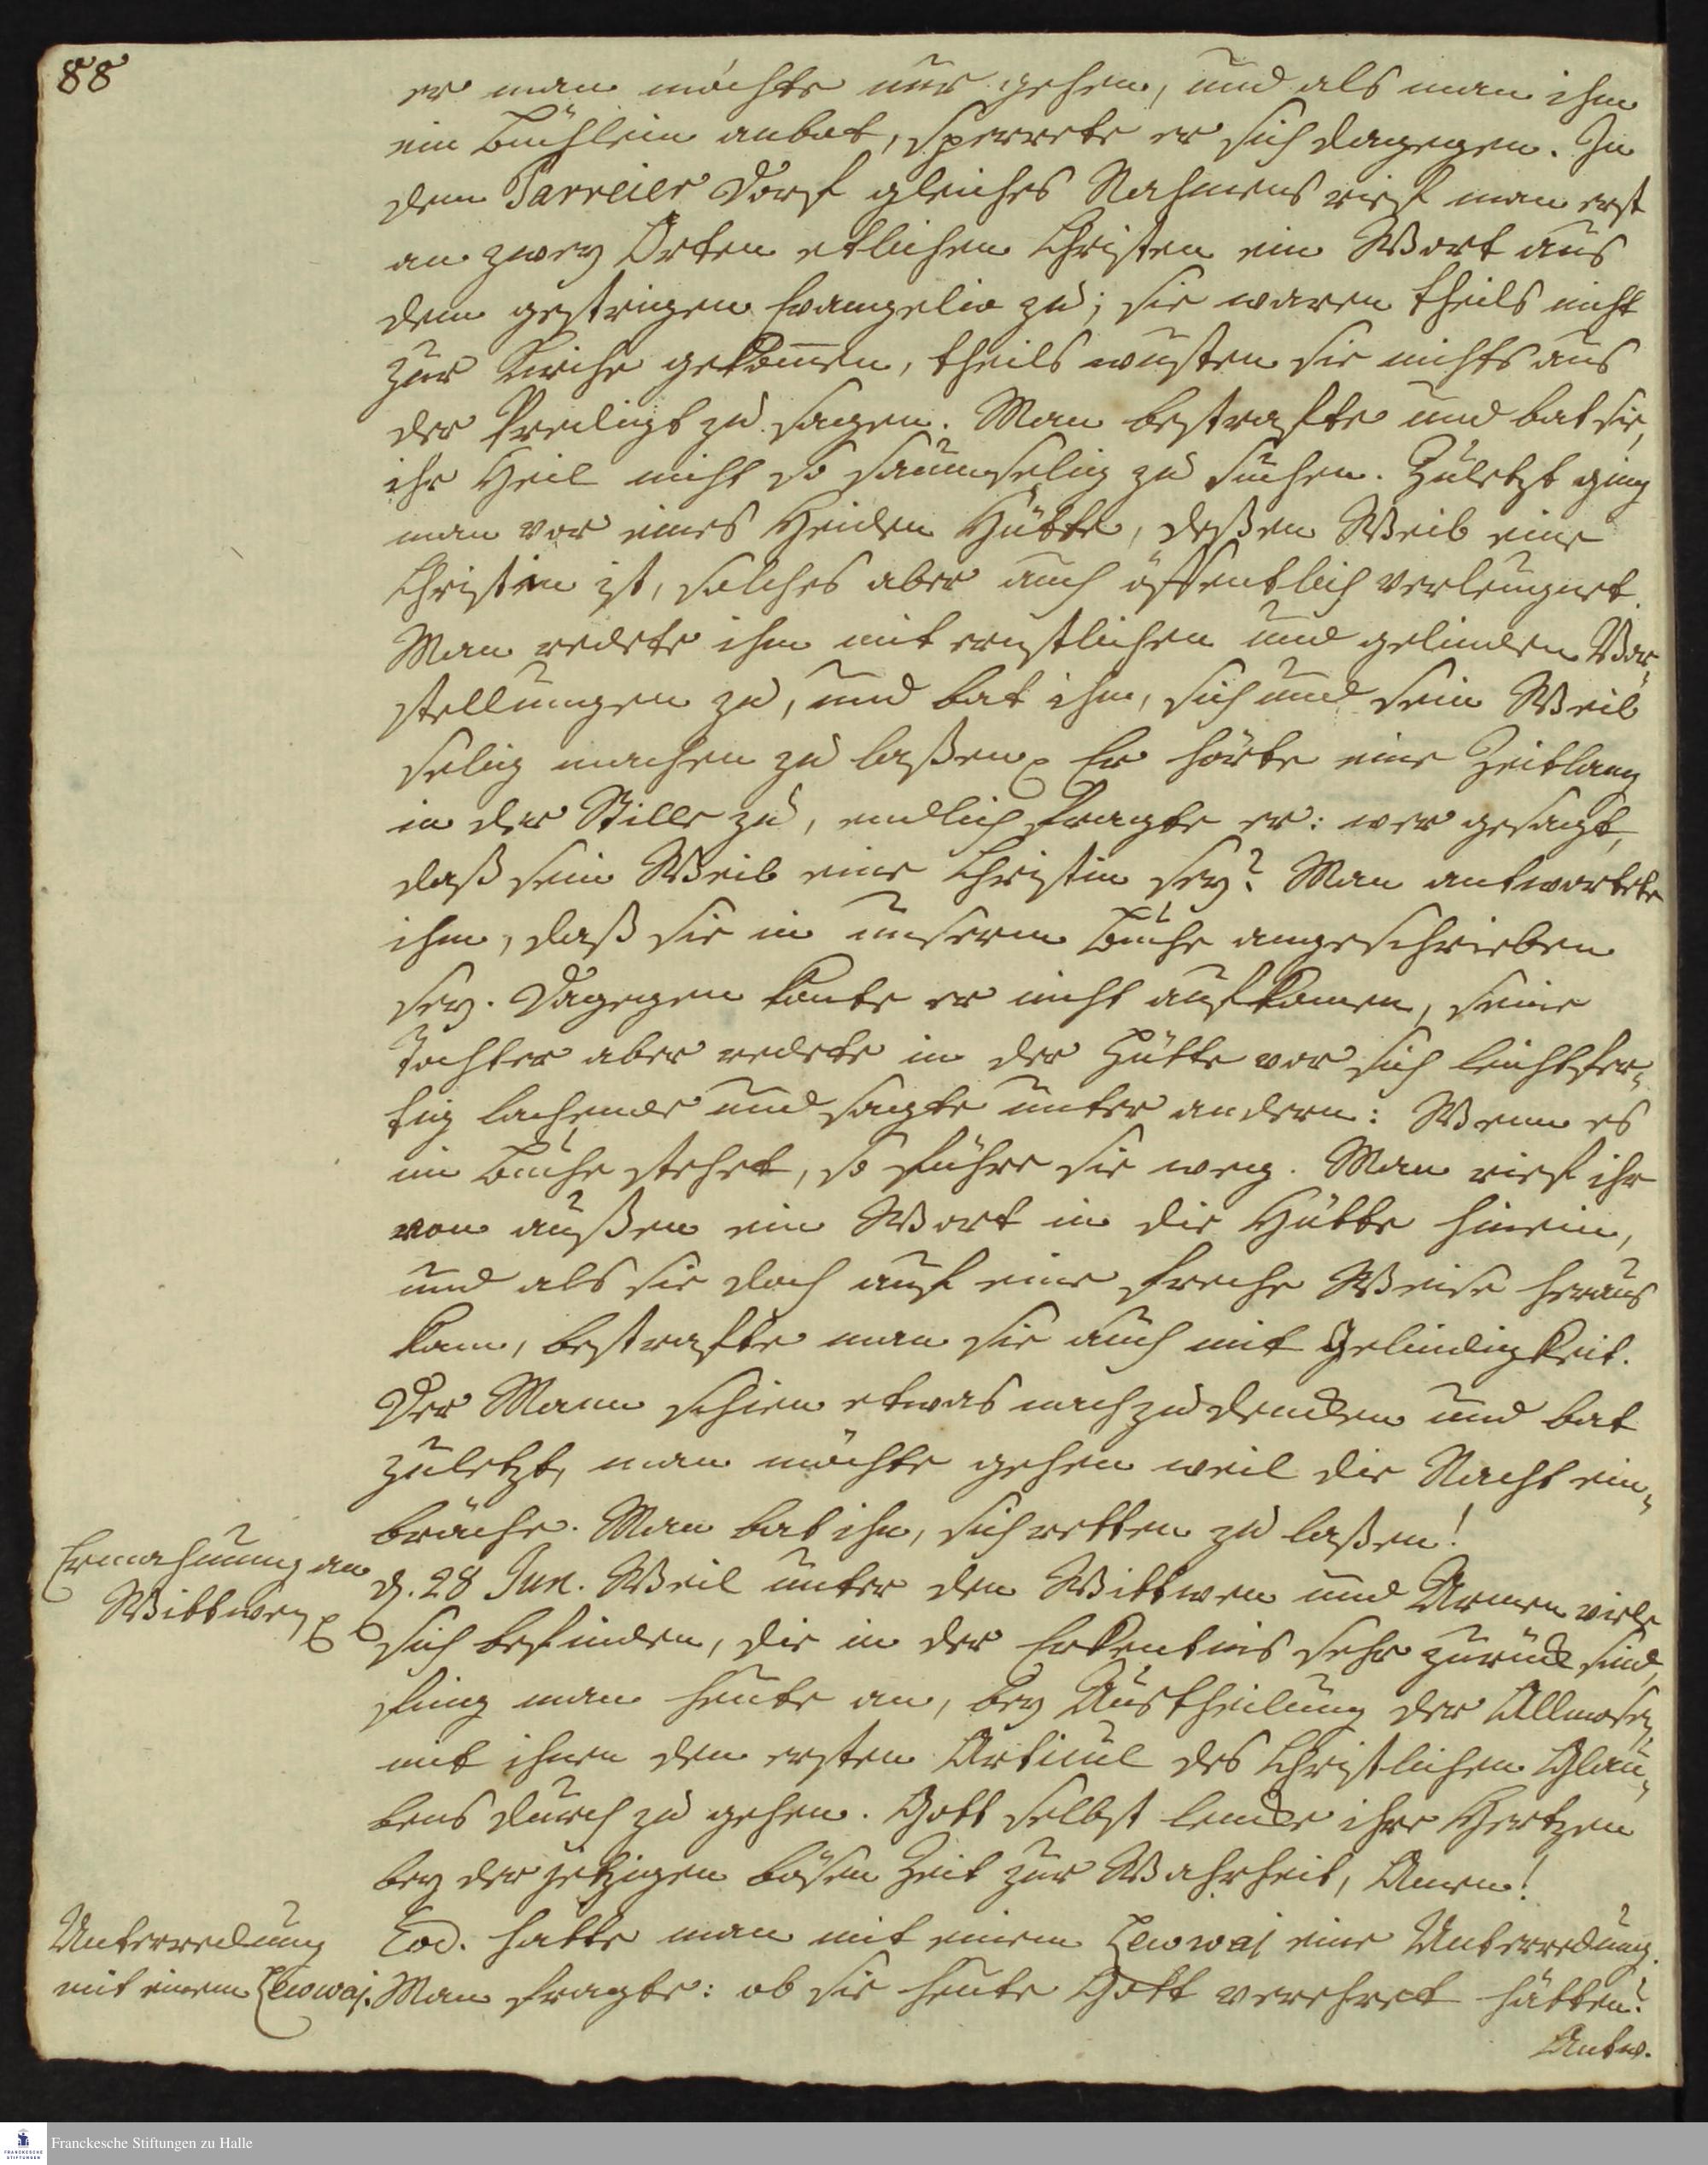 88
er man möchte nur gehen, und als man ihm
ein Büchlein anbot, sperrete er sich dagegen. In
dem Parreier Dorf gleiches Nahmens rief man erst
an zwey Orten etlichen Christen ein Wort aus
dem gestrigen Evangelio zu; sie waren theils nicht
zur Kirche gekom̄en, theils wusten sie nichts aus
der Predigt zu sagen. Man bestrafte und bat sie,
ihr Heil nicht so saumselig zu suchen. Zuletzt ging
man vor eines Heiden Hütte, deßen Weib eine
Christin ist, solches aber auch öffentlich verleugnet.
Man redete ihm mit ernstlichen und gelinden Vor-
stellungen zu, und bat ihn, sich und sein Weib
selig machen zu laßen. Er hörte eine Zeitlang
in der Stille zu, endlich fragte er: wer gesagt,
daß sein Weib eine Christin sey? Man antwortete
ihm, daß sie in unserm Buche angeschrieben
sey. Dagegen konte er nicht aufkomen, seine
Tochter aber redete in der Hütte vor sich leichtfer-
tig lachende und sagte unter andern: Wenn es
im Buche stehet, so führe sie weg. Man rief ihr
von außen ein Wort in die Hütte hinein,
und als sie doch auf eine freche Weise heraus
kam, bestrafte man sie auch mit Gelindigkeit.
Der Mann schien etwas nachzudencken und bat
zuletzt, man möchte gehen weil die Nacht ein-
bräche. Man bat ihn, sich retten zu laßen!
Ermahnung an
Wittwen
d. 28 Jun. Weil unter den Wittwen und Armen viele
sich befinden, die in der Erkentnis sehr zurück sind,
fing man heute an, bey Austheilung der Allmosen,
mit ihnen den ersten Articul des Christlichen Glau-
bens durch zu gehen. Gott selbst lencke ihre Hertzen
bey der jetzigen bösen Zeit zur Wahrheit, Amen!
Unterredung
mit einem Zewwaj.
Eod. hatte man mit einem Zewwaj eine Unterredung.
Man fragte: ob sie heute Gott verehret hätten?
Antw.
Franckesche Stiftungen zu Halle